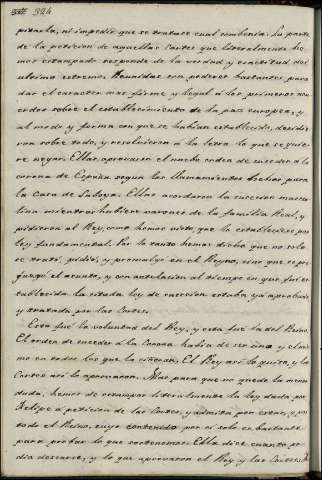 324
pararla, ni impedir que se tratase cual combenia. La parte
de la peticion de aquellas Cortes que literalmente he
mos estampado responde de la verdad y exactitud del
ultimo extremo. Reunidas con poderes bastantes para
dar el caracter mas firme y legal á los primeros acu
erdos sobre el establecimiento de la paz europea, y
al modo y forma con que se habian establecido, decidie
ron sobre todo, y resolvieron á la letra lo que se quie
re negar. Ellas aprovaron el nuebo orden de suceder á la
corona de España segun los llamamientos hechos para
la Casa de Saboya. Ellas acordaron la succesion mascu
lina mientras hubiere varones de la familia Real, y
pidieron al Rey, como hemos visto, que lo estableciese por
ley fundamental. Por lo tanto hemos dicho que no solo
se trató, pidió, y promulgó en el Reyno, sino que se pro
fuego el asunto, y con antelacion al tiempo en que fue es
tablecida la citada ley de succesion estaba ya aprobada
y tratada por las Cortes.
Esta fué la voluntad del Rey, y esta fué la del Reino.
El orden de suceder á la Corona habia de ser uno y el mis
mo en todos los que la ciñeran. El Rey asi lo quiso, y las
Cortes asi lo aprovaron. Mas para que no quede la menor
duda, hemos de estampar literalmente la ley dada por
Felipe á peticion de las Cortes, y admitida por estas, y por
todo el Reino, cuyo contenido por si solo es bastante
para probar lo que sostenemos. Ella dice cuanto po
dia desearse, y lo que aprovaron el Rey y las Cortes.